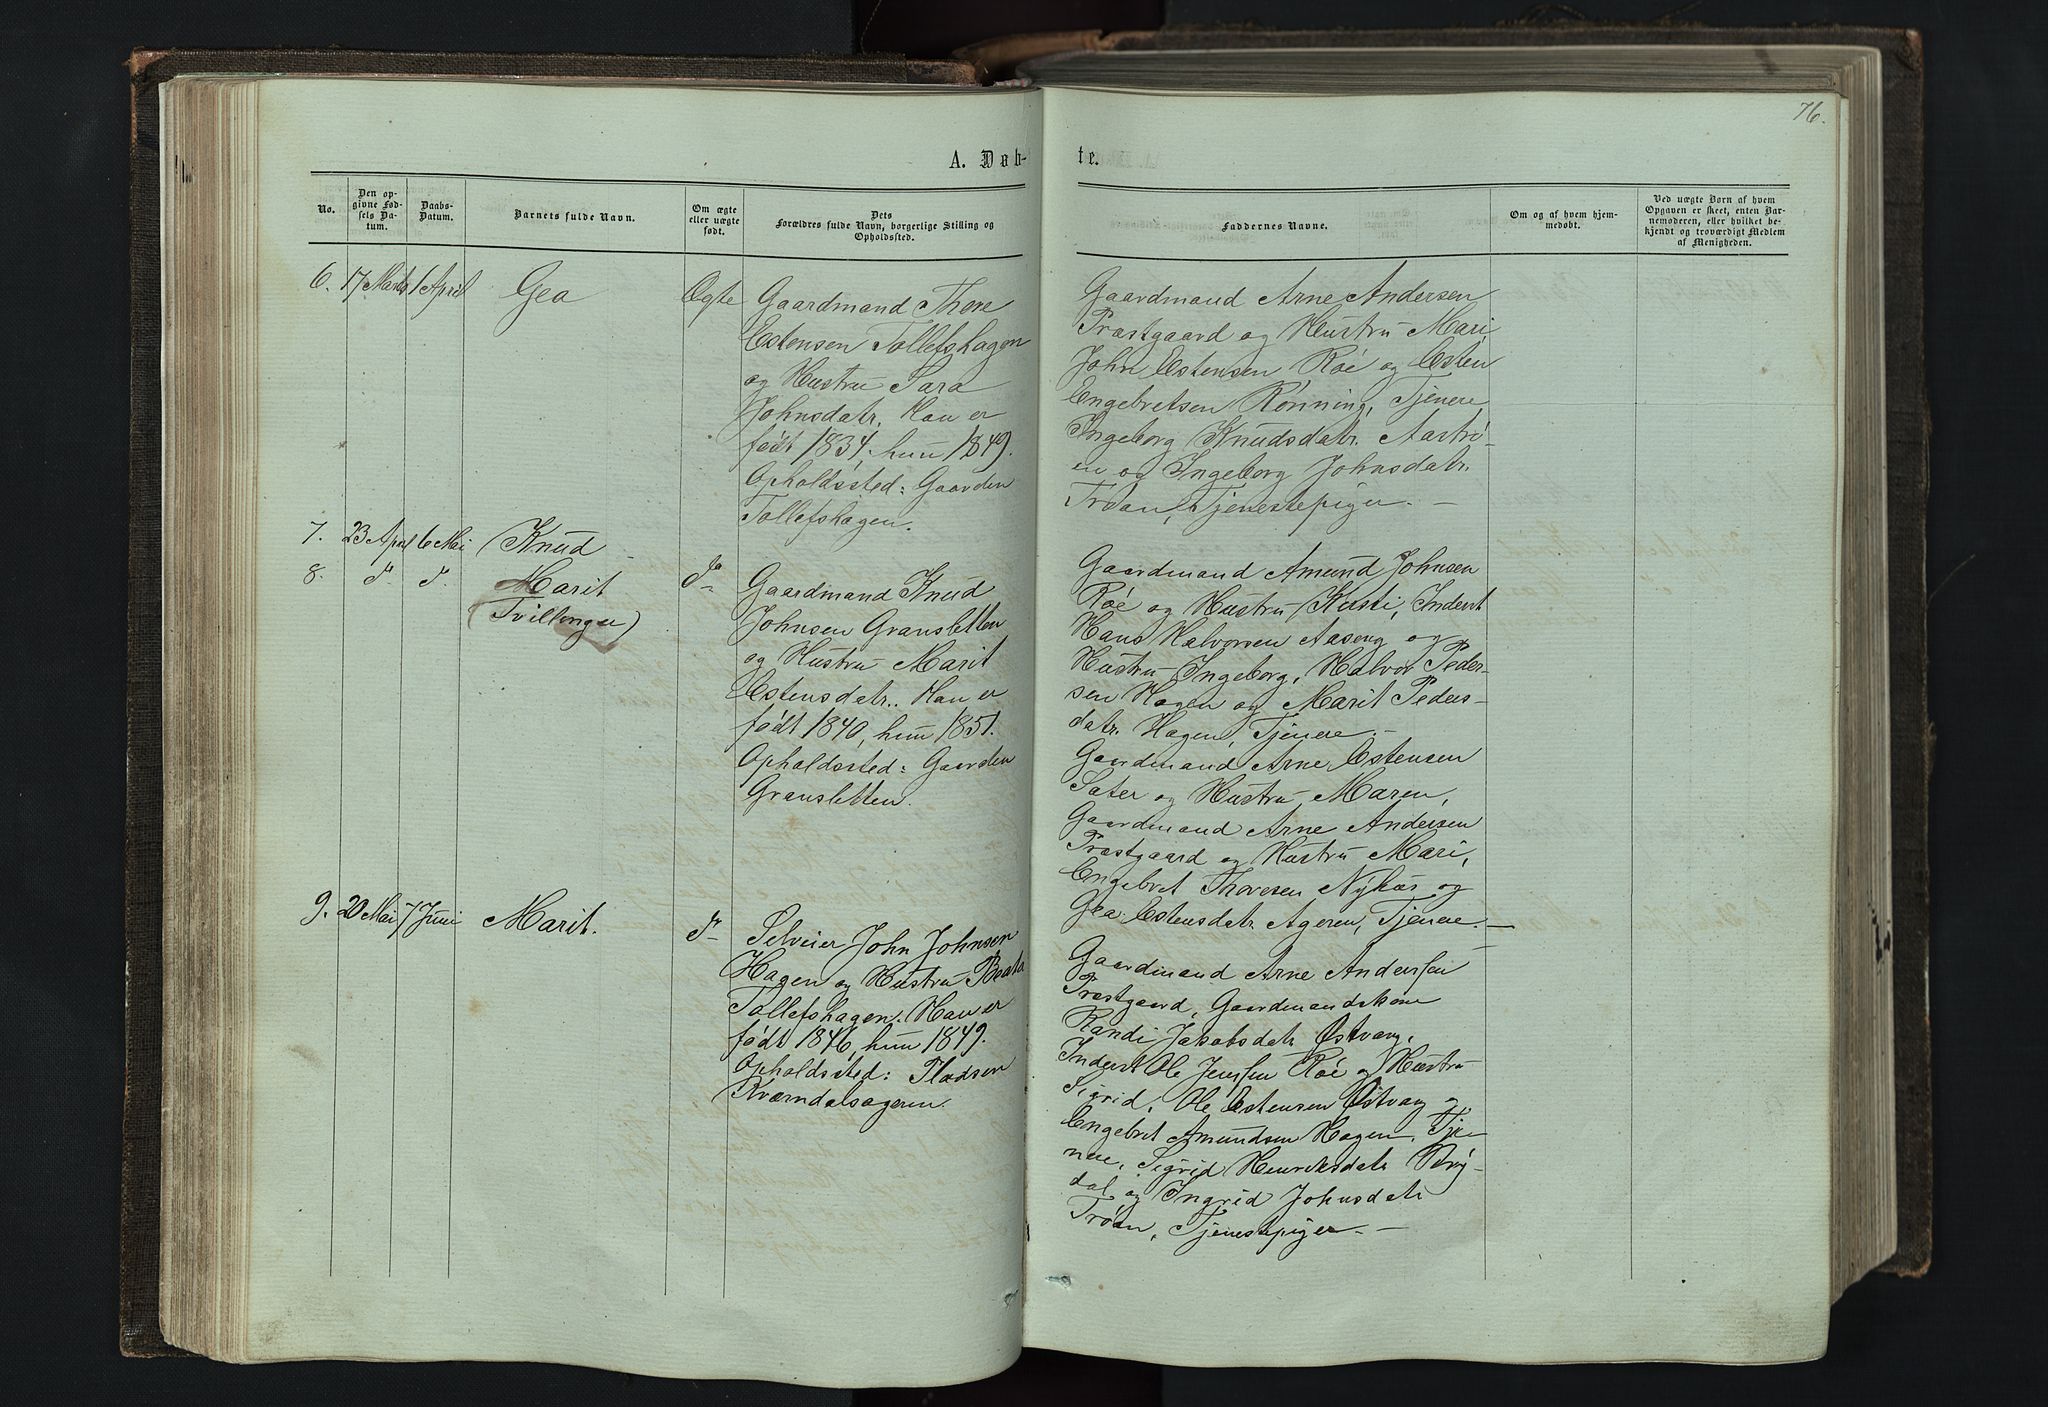 76.
A. Døb-
te.
No.
Den op-
givne Fød-
sels Da-
tum.
Daabs-
Datum.
Barnets fulde Navn.
Om ægte
eller uægte
født.
Dets
Forældres fulde Navn, borgerlige Stilling og
Opholdssted.
Faddernes Navne.
Om og af hvem hjem-
medøbt.
Ved uægte Børn af hvem
Opgaven er skeet, enten Bar-
nemoderen, eller hvilket be-
kjendt og troværdigt Medlem
af Menigheden.
6. 17 Marts 1 April Gea Ægte
Gaardmand Thore
Estensen Tollefshagen
og Hustru Sara
Johnsdatr. Han er
født 1834, hun 1849.
Opholdssted: Gaarden
Tollefshagen.
Gaardmand Arne Andersen
Præstgaard og Hustru Mari,
John Estensen Röe og Esten
Engebretsen Rönning, Tjenere
Ingeborg Knudsdatr. Aaströ-
en og Ingeborg Johnsdatr.
Tröan, Tjenestepiger. —
7. 23 April 6 Mai Knud
8. d° d° Marit
(Tvillinger)
d°
Gaardmand Knud
Johnsen Gransletten
og Hustru Marit
Estensdatr.. Han er
født 1840, hun 1851.
Opholdssted: Gaarden
Gransletten.
Gaardmand Amund Johnsen
Röe og Hustru Kusti, Inderst
Hans Halvorsen Aaseng og
Hustru Ingeborg, Halvor Peder-
sen Hagen og Marit Peders-
datr. Hagen, Tjenere. —
Gaardmand Arne Estensen
Sater og Hustru Maren,
Gaardmand Arne Andersen
Præstgaard og Hustru Mari,
Engebret Thoresen Nyhus og
Gea Estensdatr Ageren, Tjenere. —
9. 20 Mai 7 Juni Marit. d°
Selveier John Johnsen
Hagen og Hustru Beata
Tollefshagen. Han er
født 1846, hun 1849.
Opholdssted: Pladsen
Kværndalsageren.
Gaardmand Arne Anderssen
Præstgaard, Gaardmandskone
Randi Jakobsdatr Østvang,
Inderst Ole Jenssen Röe og Hustru
Sigrid, Ole Estensen Østvang og
Engebret Amundsen Hagen, Tje-
nere, Sigrid Henriksdatr Bry-
dal og Ingrid Johnsdatr
Tröan, Tjenestepiger. —